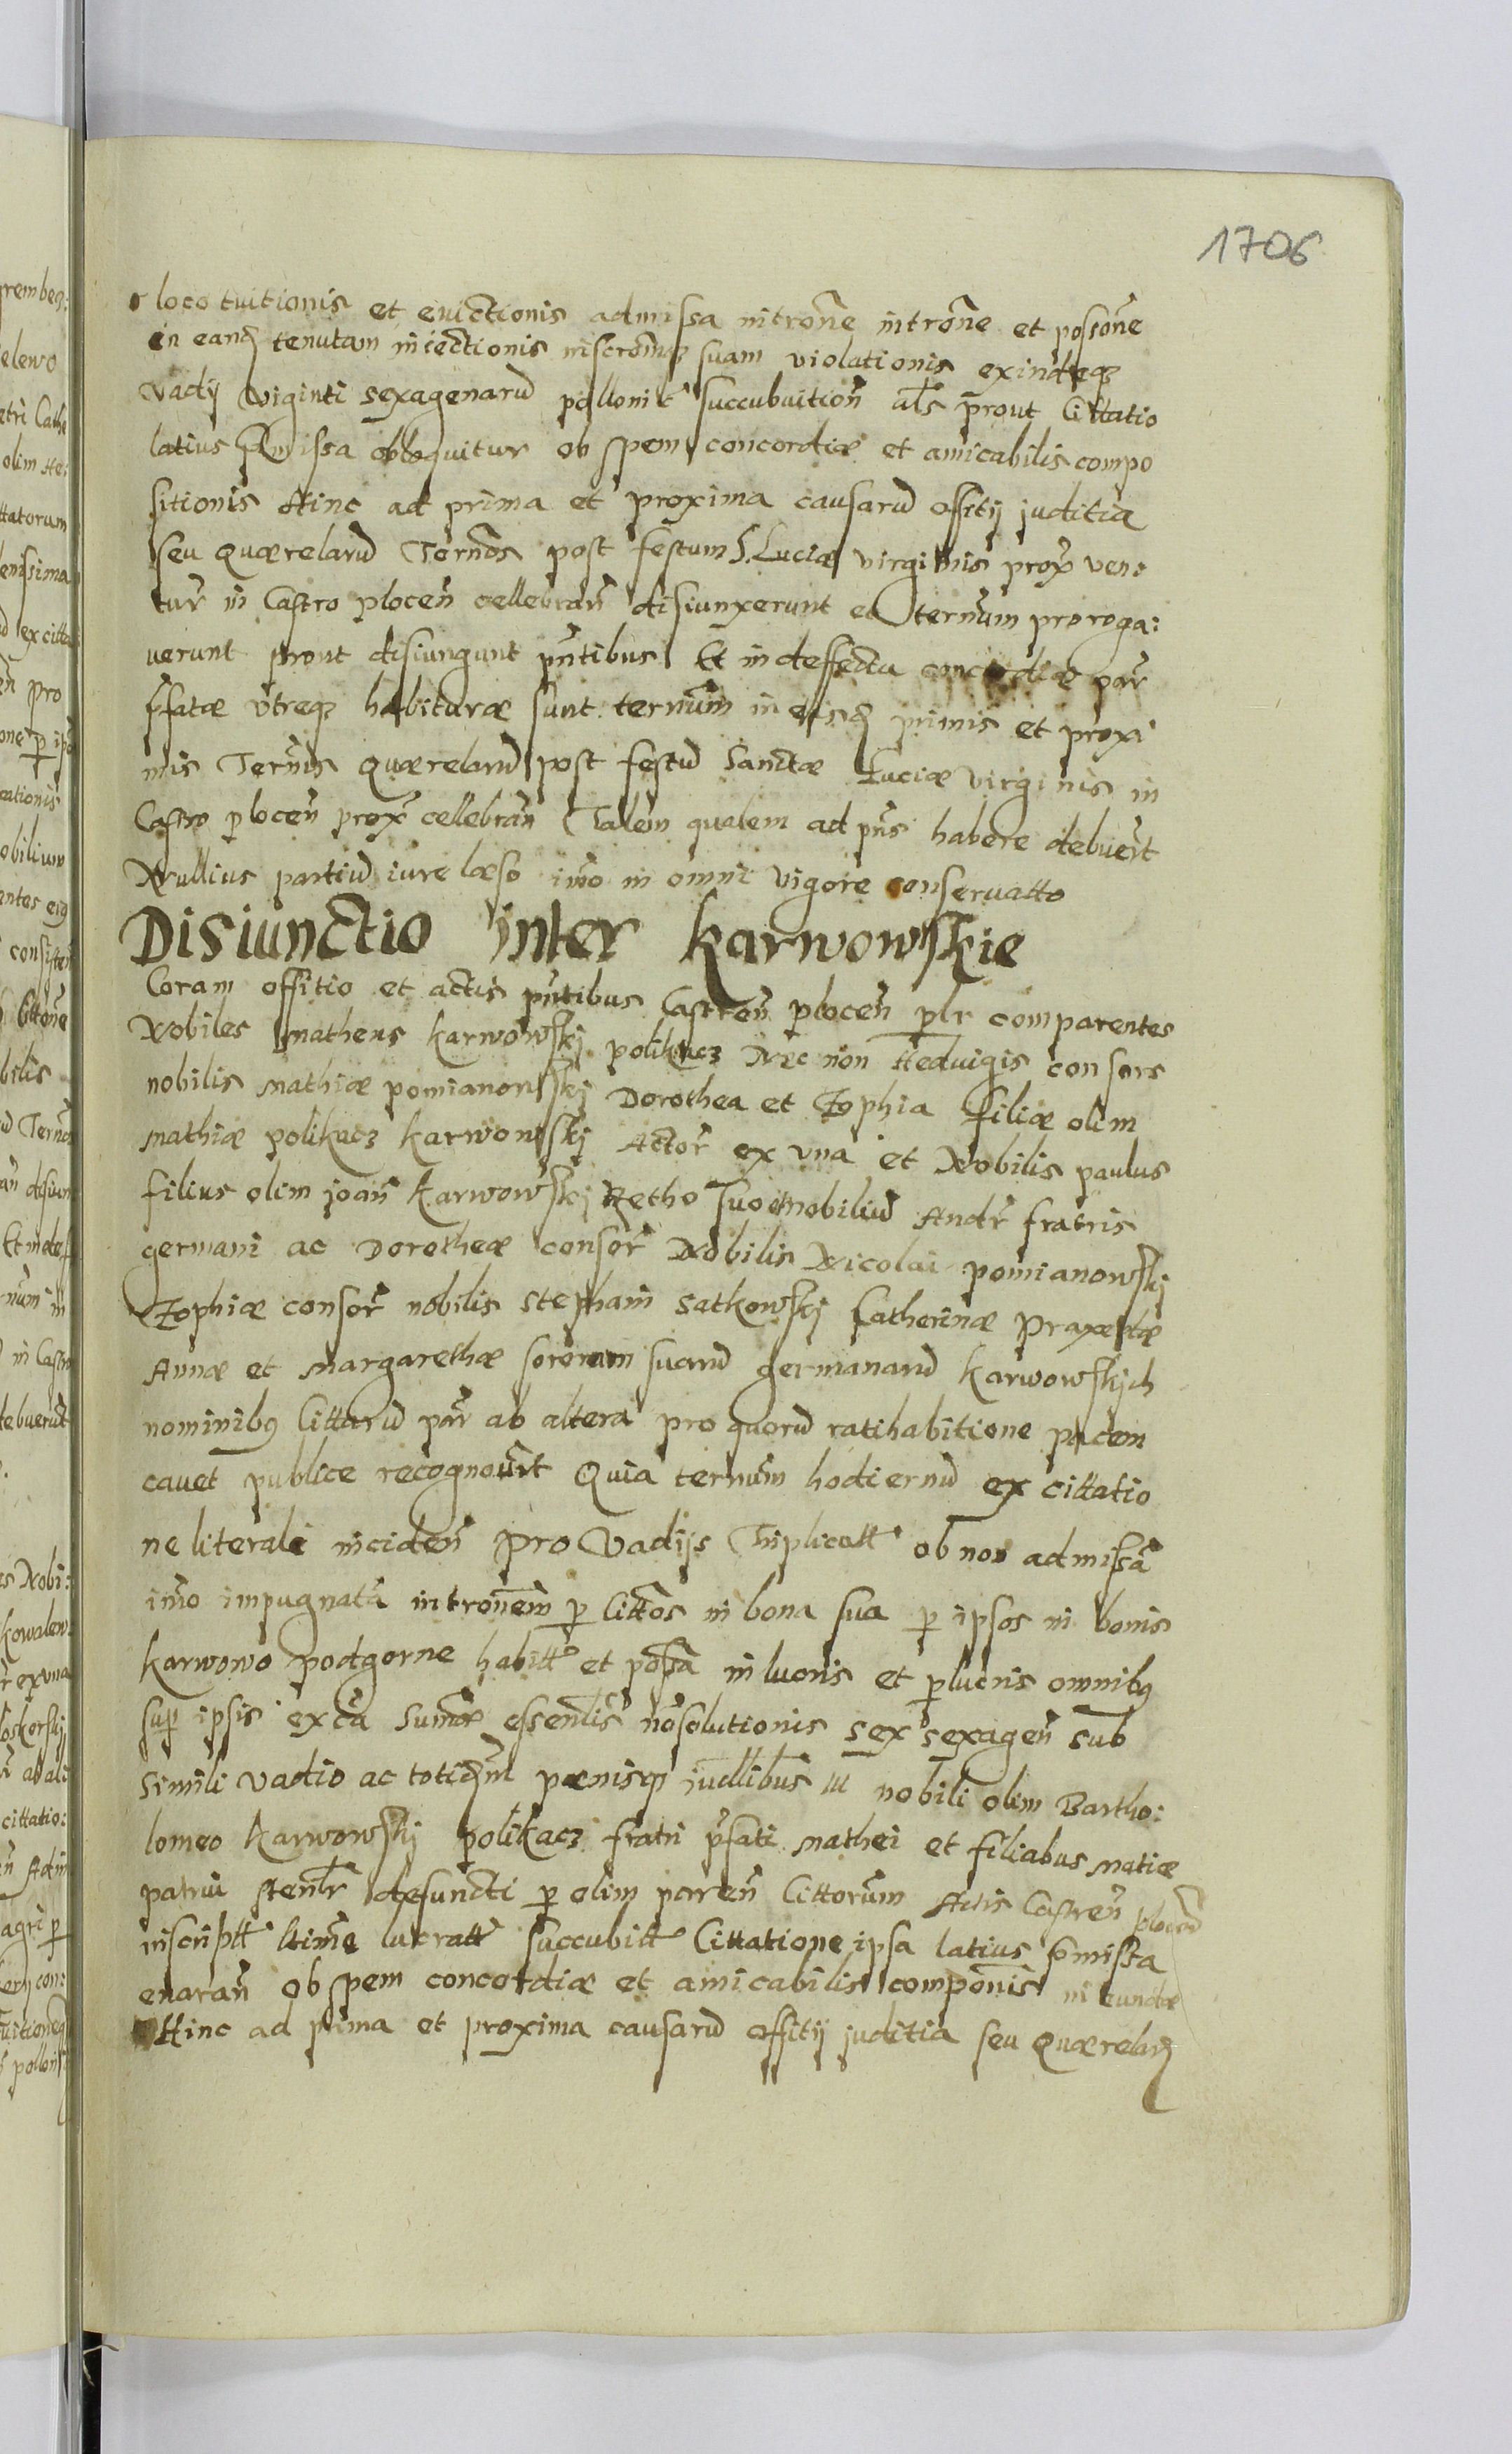 1706
loco tuitionis et euictionis admissa intrōne intrōne et possōne
in eandꝫ tenutam iniectionis inscrōmqꝫ suam violationis exindeqꝫ
vadij viginti sexagenarū pollonit succubuitioñ als prout Cittatio
latius præmissa obloquitur ob spem concordiæ et amicabilis compo
sitionis Hinc ad prima et proxima causarū offitij juditia
seu quærelarū Ternōs post festum S. Luciæ virginis prox ven:
tur in Castro ploceñ cellebrañ disiunxerunt et ternūm proroga:
uerunt prout disiungunt pn̄tibus Et in deffectu concordiæ par̄
p̄fatæ vtreqꝫ habituræ sunt ternūm in eisdꝫ primis et proxi
mis Ternīs quærelarū post festū Sanctæ Luciæ virginis in
Castro ploceñ prox cellebrañ Talem qualem ad pn̄s habere debuerūt
Nullius partiū iure læso imō in omni vigore conseruatto
Disiunctio inter Karwowskie
Coram offitio et actis pn̄tibus Castreñ ploceñ plr̄ comparentes
Nobiles Matheus Karwowskj polikacz Nec non Heduigis consors
nobilis Mathiæ pomianowskj Dorothea et Zophia filiæ olim
Mathiæ polikacz Karwowskj Actor̄ ex vna et Nobilis paulus
filius olim joañ Karwowskj Retho suo et nobiliū Andr̄ fratris
germani ac Dorotheæ consor̄ Nobilis Nicolai pomianowskj
Zophiæ consor̄ nobilis Stephani Satkowskj Catherinæ praxedæ
Annæ et Margarethæ sororum suarū germanarū Karwowskich
nominibꝰ Cittarū par̄ ab altera pro quorū ratihabitione pacem
cauet publice recognouer̄t Quia ternūm hodiernū ex cittatio
ne literali incideñ pro Vadijs Triplicatt ob non admissā
imō impugnatā intronem̄ p Cittōs in bona sua p ipsos in bonis
Karwowo podgorne habitt et possā in lucris et perlucris omnibꝰ
sup ipsis ex cā sum̄æ essenlis nōsolutionis sex sexageñ sub
simili vadio ac totidꝫm pænis iudlibus nobili olim Bartho:
lomeo Karwowskj polikacz fratri p̄fati Mathei et filiabus Matiæ
patrui defuncti p olim pareñ Cittorūm Actis Castreñ ploceñ
inscriptt luratt succubitt Cittatione ipsa latius præmissa
enarañ Ob spem concordiæ et amicabilis compōnis ineundæ
Hinc ad prima et proxima causarū offitij juditia seu quærelarꝫ